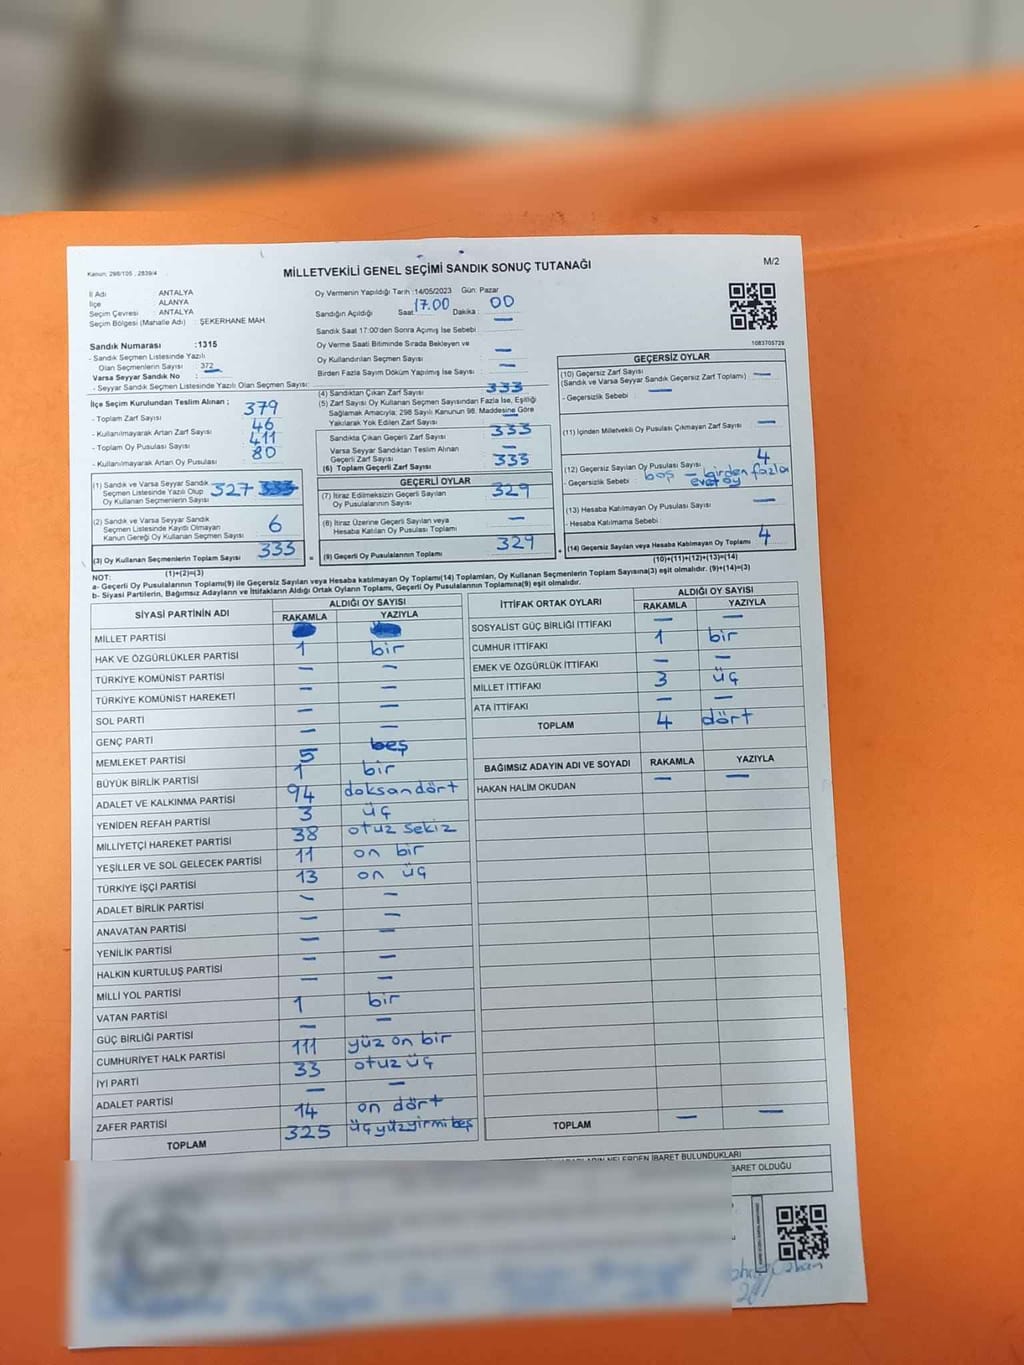 Kanun; 298/105 , 2839/4
MİLLETVEKİLİ GENEL SEÇİMİ SANDIK SONUÇ TUTANAĞI
M/2
İl Adı ANTALYA
İlçe ALANYA
Seçim Çevresi : ANTALYA
Seçim Bölgesi (Mahalle Adı) : ŞEKERHANE MAH.
Sandık Numarası :1315
- Sandık Seçmen Listesinde Yazılı
Olan Seçmenlerin Sayısı : 372
Varsa Seyyar Sandık No :
- Seyyar Sandık Seçmen Listesinde Yazılı Olan Seçmen Sayısı:
Oy Vermenin Yapıldığı Tarih :14/05/2023 Gün: Pazar
Sandığın Açıldığı Saat 17.00 Dakika : 00
Sandık Saat 17:00'den Sonra Açımış İse Sebebi : —
Oy Verme Saati Bitiminde Sırada Bekleyen ve
Oy Kullandırılan Seçmen Sayısı : —
Birden Fazla Sayım Döküm Yapılmış İse Sayısı : —
1083705729
İlçe Seçim Kurulundan Teslim Alınan ;
- Toplam Zarf Sayısı : 379
- Kullanılmayarak Artan Zarf Sayısı : 46
- Toplam Oy Pusulası Sayısı : 411
- Kullanılmayarak Artan Oy Pusulası : 80
(1) Sandık ve Varsa Seyyar Sandık
Seçmen Listesinde Yazılı Olup
Oy Kullanan Seçmenlerin Sayısı 327
(2) Sandık ve Varsa Seyyar Sandık
Seçmen Listesinde Kayıtlı Olmayan
Kanun Gereği Oy Kullanan Seçmen Sayısı 6
(3) Oy Kullanan Seçmenlerin Toplam Sayısı 333
(1)+(2)=(3)
(4) Sandıktan Çıkan Zarf Sayısı : 333
(5) Zarf Sayısı Oy Kullanan Seçmen Sayısından Fazla İse, Eşitliği
Sağlamak Amacıyla; 298 Sayılı Kanunun 98. Maddesine Göre
Yakılarak Yok Edilen Zarf Sayısı : —
Sandıkta Çıkan Geçerli Zarf Sayısı : 333
Varsa Seyyar Sandıktan Teslim Alınan
Geçerli Zarf Sayısı : —
(6) Toplam Geçerli Zarf Sayısı : 333
GEÇERLİ OYLAR
(7) İtiraz Edilmeksizin Geçerli Sayılan
Oy Pusulalarının Sayısı : 329
(8) İtiraz Üzerine Geçerli Sayılan veya
Hesaba Katılan Oy Pusulası Toplamı : —
(9) Geçerli Oy Pusulalarının Toplamı : 329
GEÇERSİZ OYLAR
(10) Geçersiz Zarf Sayısı : —
(Sandık ve Varsa Seyyar Sandık Geçersiz Zarf Toplamı)
- Geçersizlik Sebebi : —
(11) İçinden Milletvekili Oy Pusulası Çıkmayan Zarf Sayısı : —
(12) Geçersiz Sayılan Oy Pusulası Sayısı : 4
- Geçersizlik Sebebi : boş — birden fazla
evet oy
(13) Hesaba Katılmayan Oy Pusulası Sayısı : —
- Hesaba Katılmama Sebebi :
(14) Geçersiz Sayılan veya Hesaba Katılmayan Oy Toplamı : 4
(10)+(11)+(12)+(13)=(14)
NOT:
a- Geçerli Oy Pusulalarının Toplamı(9) ile Geçersiz Sayılan veya Hesaba katılmayan Oy Toplamı(14) Toplamları, Oy Kullanan Seçmenlerin Toplam Sayısına(3) eşit olmalıdır. (9)+(14)=(3)
b- Siyasi Partilerin, Bağımsız Adayların ve İttifakların Aldığı Ortak Oyların Toplamı, Geçerli Oy Pusulalarının Toplamına(9) eşit olmalıdır.
SİYASİ PARTİNİN ADI ALDIĞI OY SAYISI
RAKAMLA YAZIYLA
MİLLET PARTİSİ
HAK VE ÖZGÜRLÜKLER PARTİSİ 1 bir
TÜRKİYE KOMÜNİST PARTİSİ — —
TÜRKİYE KOMÜNİST HAREKETİ — —
SOL PARTİ — —
GENÇ PARTİ — —
MEMLEKET PARTİSİ 5 beş
BÜYÜK BİRLİK PARTİSİ 1 bir
ADALET VE KALKINMA PARTİSİ 94 doksan dört
YENİDEN REFAH PARTİSİ 3 üç
MİLLİYETÇİ HAREKET PARTİSİ 38 otuz sekiz
YEŞİLLER VE SOL GELECEK PARTİSİ 11 on bir
TÜRKİYE İŞÇİ PARTİSİ 13 on üç
ADALET BİRLİK PARTİSİ — —
ANAVATAN PARTİSİ — —
YENİLİK PARTİSİ — —
HALKIN KURTULUŞ PARTİSİ — —
MİLLİ YOL PARTİSİ — —
VATAN PARTİSİ 1 bir
GÜÇ BİRLİĞİ PARTİSİ — —
CUMHURİYET HALK PARTİSİ 111 yüz on bir
İYİ PARTİ 33 otuz üç
ADALET PARTİSİ — —
ZAFER PARTİSİ 14 on dört
TOPLAM 325 üç yüz yirmi beş
İTTİFAK ORTAK OYLARI ALDIĞI OY SAYISI
RAKAMLA YAZIYLA
SOSYALİST GÜÇ BİRLİĞİ İTTİFAKI — —
CUMHUR İTTİFAKI 1 bir
EMEK VE ÖZGÜRLÜK İTTİFAKI — —
MİLLET İTTİFAKI 3 üç
ATA İTTİFAKI — —
TOPLAM 4 dört
BAĞIMSIZ ADAYIN ADI VE SOYADI RAKAMLA YAZIYLA
HAKAN HALİM OKUDAN — —
TOPLAM — —
NELERDEN İBARET BULUNDUKLARI
İBARET OLDUĞU